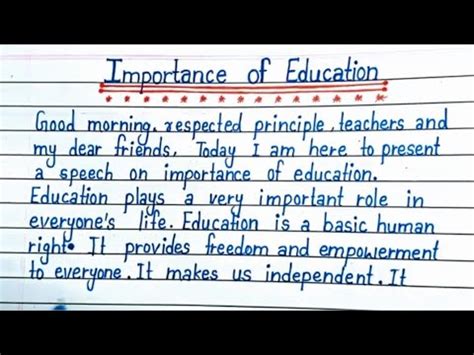 Importance of Education
Good morning, respected principle, teachers and
my dear friends, Today I am here to present
a speech on importance of education.
Education plays a very important role in
everyone's life. Education is a basic human
right. It provides freedom and empowerment
to everyone. It makes us independent. It